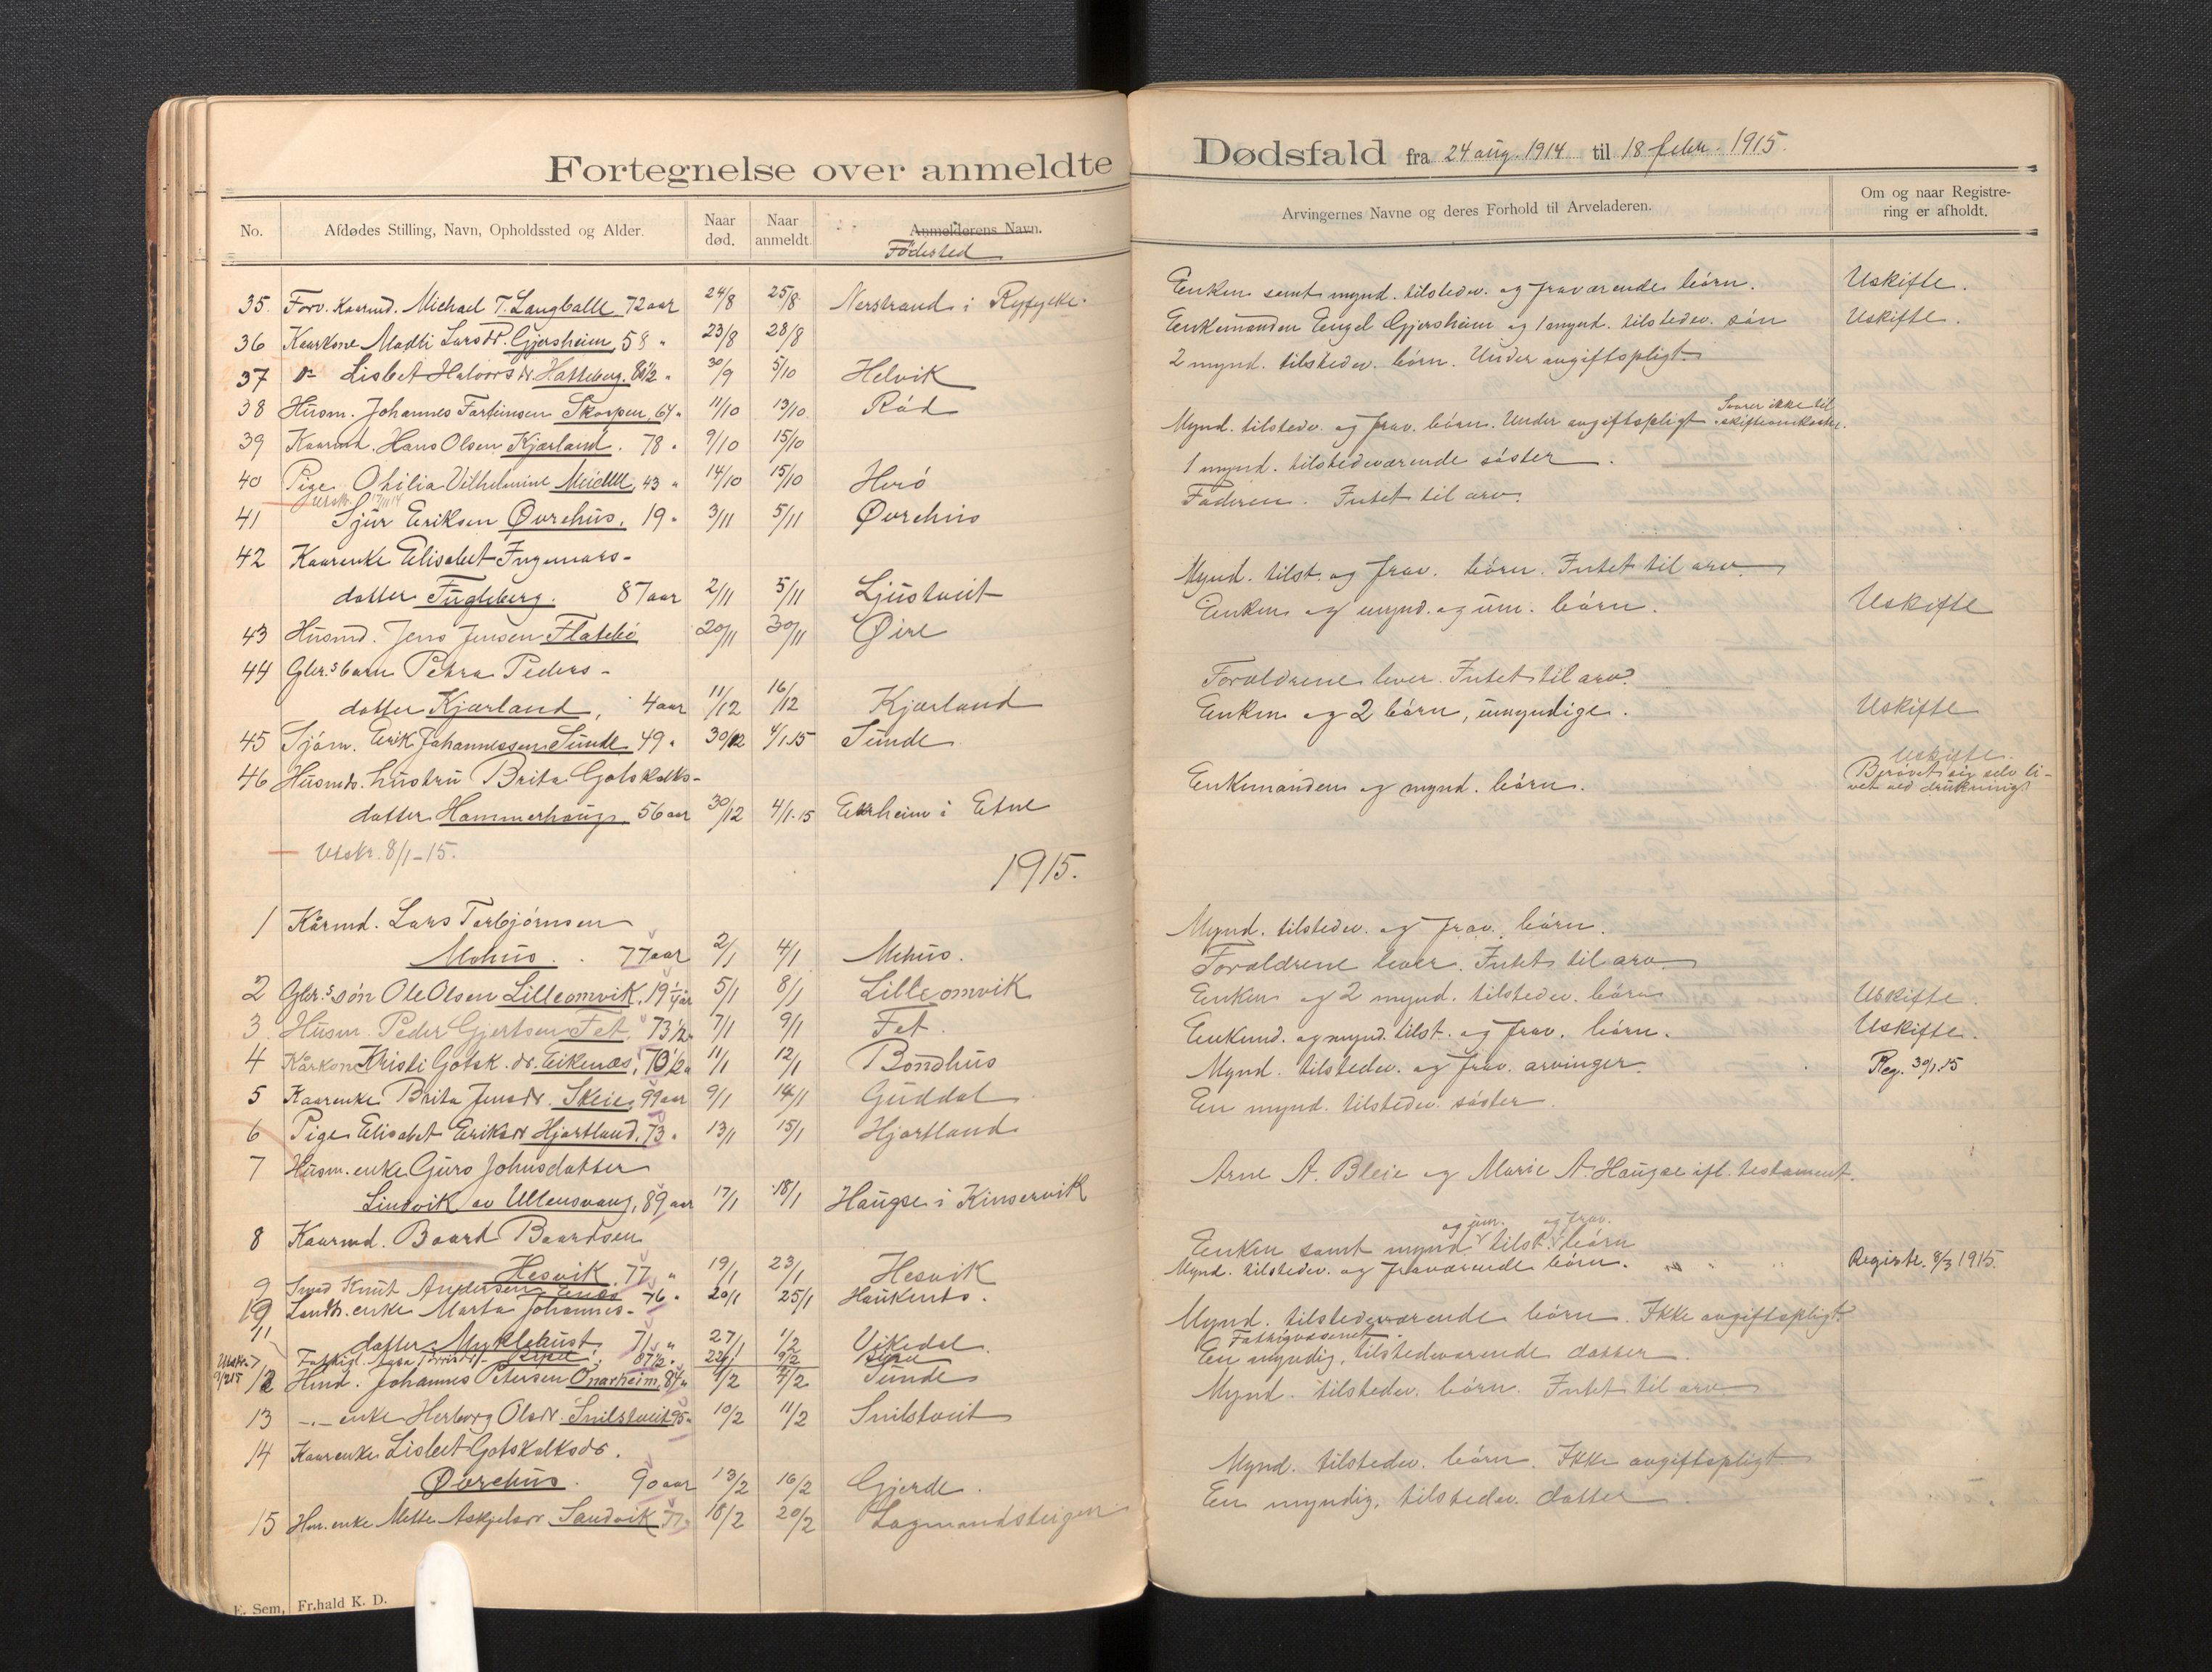 Fortegnelse over anmeldte Dødsfald fra 24 aug. 1914 til 18 febr. 1915.
No. Afdødes Stilling, Navn, Opholdssted og Alder. Naar død. Naar anmeldt. Anmelderens Navn. Fødested Arvingernes Navne og deres Forhold til Arveladeren. Om og naar Registrering er afholdt.
35. Forv. Kaarmd. Michael T. Langballe 72 aar 24/8 25/8 Nerstrand i Ryfylke. Enken samt mynd. tilstedev. og fraværende børn. Uskifte.
36 Kaarkone Madli Larsdr. Gjersheim, 58 " 23/8 28/8 Enkemanden Engel Gjersheim og 1 mynd. tilstedev. søn Uskifte.
37 Lisbet Halvorsdr. Hatteberg. 80 1/2 " 30/9 5/10 Helvik 2 mynd. tilstedev. børn. Under avgiftspligt
38 Husm. Johannes Torbeinsen Skorpen, 64 " 11/10 13/10 Råd
39 Kaarmd. Hans Olsen Kjærland. 78 " 9/10 15/10 Mynd. tilstedev. og frav. børn. Under avgiftspligt. Svarer ikke til skifteomkostn.
40 Pige Othilia Vilhelmine Meidell, 43 " 14/10 15/10 Herø 1 mynd. tilstedeværende søster.
Utskr. 17/11 14
41 Sjur Eriksen Øvrehus, 19 " 3/11 5/11 Øvrehus Faderen. Intet til arv.
42 Kaarenke Elisabet Ingemars-
datter Fugleberg. 87 aar 2/11 5/11 Ljustveit Mynd. tilst. og frav. børn. Intet til arv.
43 Husmd. Jens Jensen Flatebø 20/11 30/11 Øire Enken og mynd. og um. børn. Uskifte
44 Gbr.s barn Petra Peders-
datter Kjærland, 4 aar 11/12 16/12 Kjærland Forældrene lever. Intet til arv.
45 Sjøm. Erik Johannessen Sunde 49 " 30/12 4/1.15 Sunde Enken og 2 børn, umyndige. Uskifte
46 Husmds. hustru Brita Gotskalks-
datter Hammerhaug. 56 aar 30/12 4/1.15 Etne Enkemanden og mynd. børn. Uskifte. Berøvet sig selv livet ved drukning
Utskr. 8/1-15.
1915.
1 Kårmd. Lars Torbjørnsen
Mehus. 77 aar 2/1 4/1 Mehus. Mynd. tilstedev. og frav. børn.
2 Gbr.s søn Ole Olsen Lilleomvik, 19 1/4 år 5/1 8/1 Lilleomvik Forældrene lever. Intet til arv.
3. Husm. Peder Gjertsen Fet. 73 1/2 " 7/1 9/1 Fet. Enken og 2 mynd. tilstedev. børn Uskifte.
4 Kårkone Kristi Gotsk.dr. Eikenæs, 70 1/2 " 11/1 12/1 Bondhus Enkemd. og mynd. tilst. og frav. børn. Uskifte.
5 Kaarenke Brita Jensdr. Skeie, 99 aar 9/1 14/1 Guddal Mynd. tilstedev. og frav. arvinger. Reg. 30/1.15
6 Pige Elisabet Eriksdr Hjartland, 73 " 13/1 15/1 Hjartland En mynd. tilstedev. søster.
7 Husm. enke Guro Johnsdatter
Lindvik av Ullensvang, 89 aar 17/1 18/1 Haugse i Kinservik Arne A. Bleie og Marie A. Haugse ifl. testament.
8 Kaarmd. Baard Baardsen
Hesvik. 77 " 19/1 23/1 Hesvik Enken samt mynd. og um. tilst. og frav. børn
9 Knut Andersen Enæs 76 " 20/1 25/1 Haukenæs. Mynd. tilstedev. og fraværende børn. Registr. 8/3 1915.
10 Landh. enke Marta Johannes-
datter Myklebust 71 " 27/1 1/2 Vikedal Mynd. tilstedeværende børn. Ikke avgiftspligt
11 Fattigl. 87 1/2 " 22/1 9/2 Fattigvæsenet.
Utskr. 9/2 15
12 Hmd. Johannes Petersen Onarheim, 84 " 1/2 7/2 Sunde En myndig, tilstedeværende datter.
13 -"- enke Herborg Olsdr. Snilstveit 95 " 10/2 11/2 Snilstveit Mynd. tilstedev. børn. Intet til arv.
14 Kaarenke Lisbet Gotskalksdr.
Øvrehus. 90 aar 13/2 16/2 Gjerde. Mynd. tilstedev. børn. Ikke avgiftspligt
15 Hm. enke Mette Askjelsdr. Sandvik 77 " 18/2 20/2 Lagmandsteigen En myndig, tilstedev. datter.
E. Sem, Fr.hald K. D.